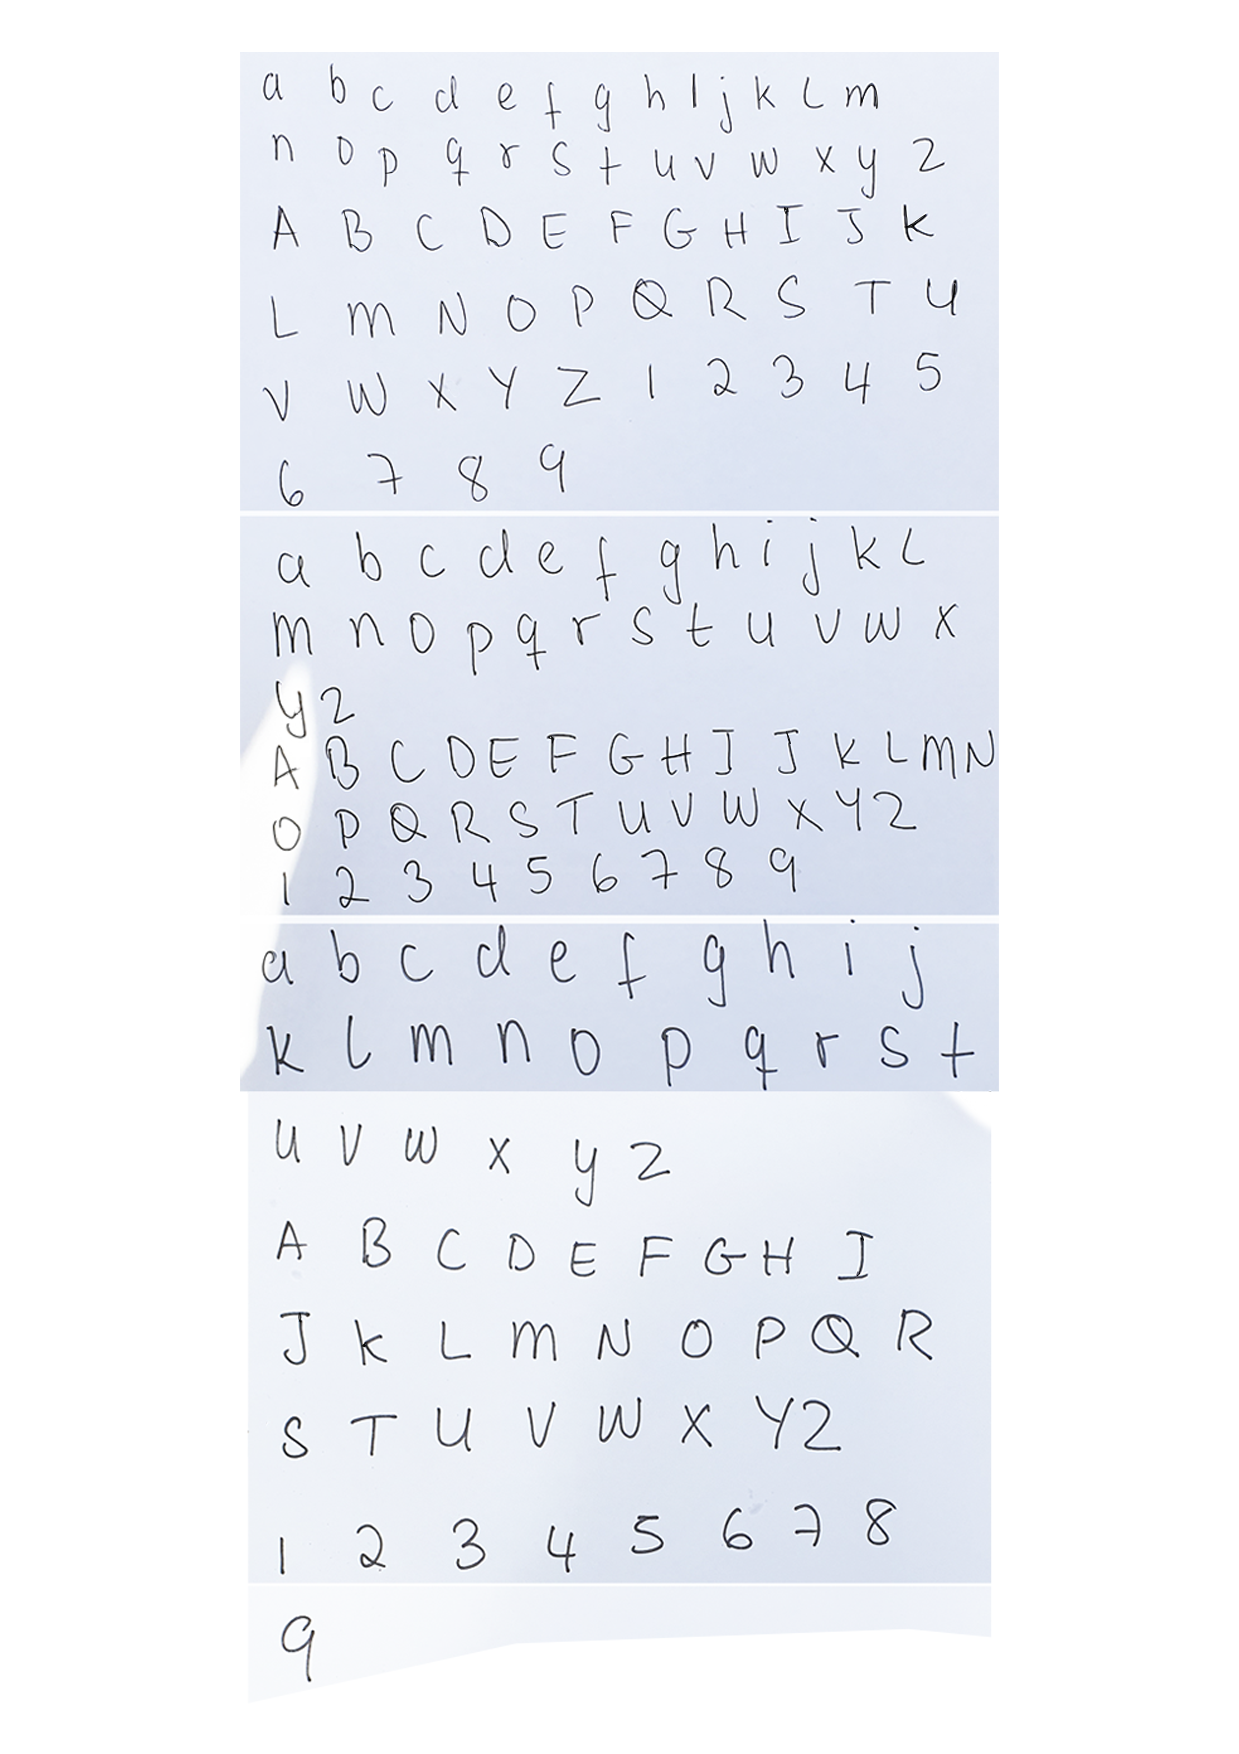 a b c d e f g h I j k L m
n o p q r s t u v w x y z
A B C D E F G H I J K
L M N O P Q R S T U
V W X Y Z 1 2 3 4 5
6 7 8 9
a b c d e f g h i j k L
m n o p q r s t u v w x
y z
A B C D E F G H I J K L M N
O P Q R S T U V W X Y Z
1 2 3 4 5 6 7 8 9
a b c d e f g h i j
k l m n o p q r s t
u v w x y z
A B C D E F G H I
J K L M N O P Q R
S T U V W X Y Z
1 2 3 4 5 6 7 8
9